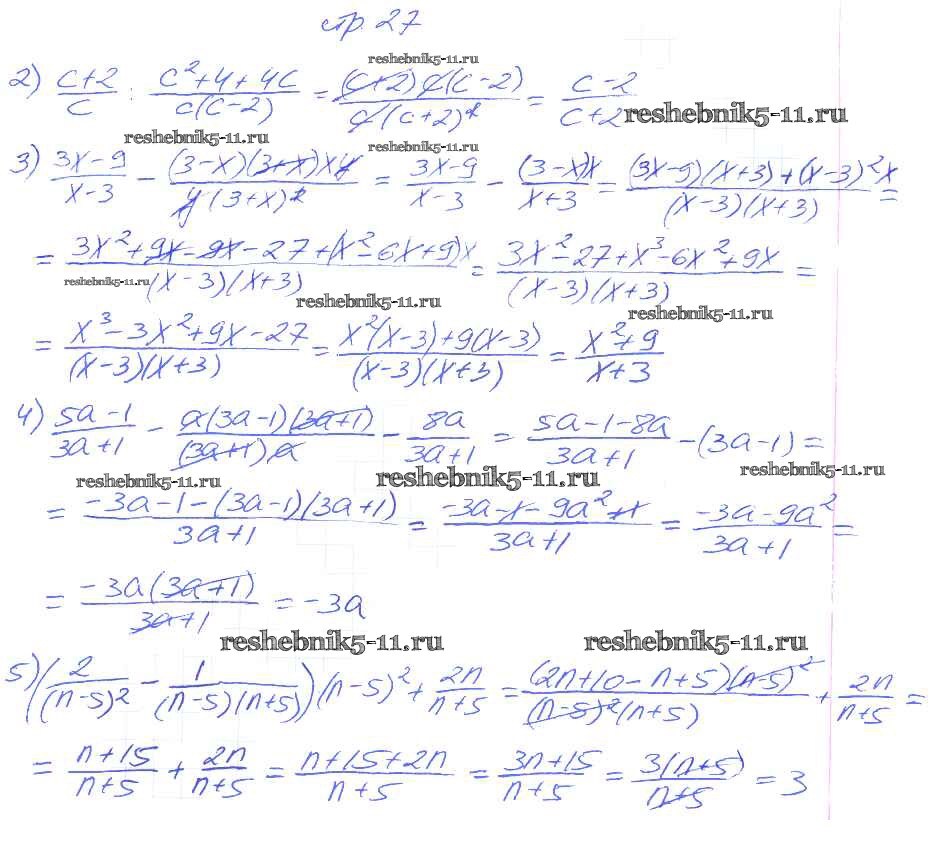 стр. 27
reshebnik5-11.ru
2) (c+2)/c : (c²+4+4c)/(c(c-2)) = ((c+2) c(c-2))/(c(c+2)²) = (c-2)/(c+2)
reshebnik5-11.ru
reshebnik5-11.ru
reshebnik5-11.ru
3) (3x-9)/(x-3) - ((3-x)(3+x)xy)/(y(3+x)²) = (3x-9)/(x-3) - ((3-x)x)/(x+3) = ((3x-9)(x+3)+(x-3)²x)/((x-3)(x+3)) =
= (3x²+9x-9x-27+(x²-6x+9)x)/((x-3)(x+3)) = (3x²-27+x³-6x²+9x)/((x-3)(x+3)) =
reshebnik5-11.ru
reshebnik5-11.ru
reshebnik5-11.ru
= (x³-3x²+9x-27)/((x-3)(x+3)) = (x²(x-3)+9(x-3))/((x-3)(x+3)) = (x²+9)/(x+3)
4) (5a-1)/(3a+1) - (a(3a-1)(3a+1))/((3a+1)a) - 8a/(3a+1) = (5a-1-8a)/(3a+1) - (3a-1) =
reshebnik5-11.ru
reshebnik5-11.ru
reshebnik5-11.ru
= (-3a-1-(3a-1)(3a+1))/(3a+1) = (-3a-1-9a²+1)/(3a+1) = (-3a-9a²)/(3a+1) =
= (-3a(3a+1))/(3a+1) = -3a
reshebnik5-11.ru
reshebnik5-11.ru
5) (2/(n-5)² - 1/((n-5)(n+5)))(n-5)² + 2n/(n+5) = ((2n+10-n+5)(n-5)²)/((n-5)²(n+5)) + 2n/(n+5) =
= (n+15)/(n+5) + 2n/(n+5) = (n+15+2n)/(n+5) = (3n+15)/(n+5) = (3(n+5))/(n+5) = 3